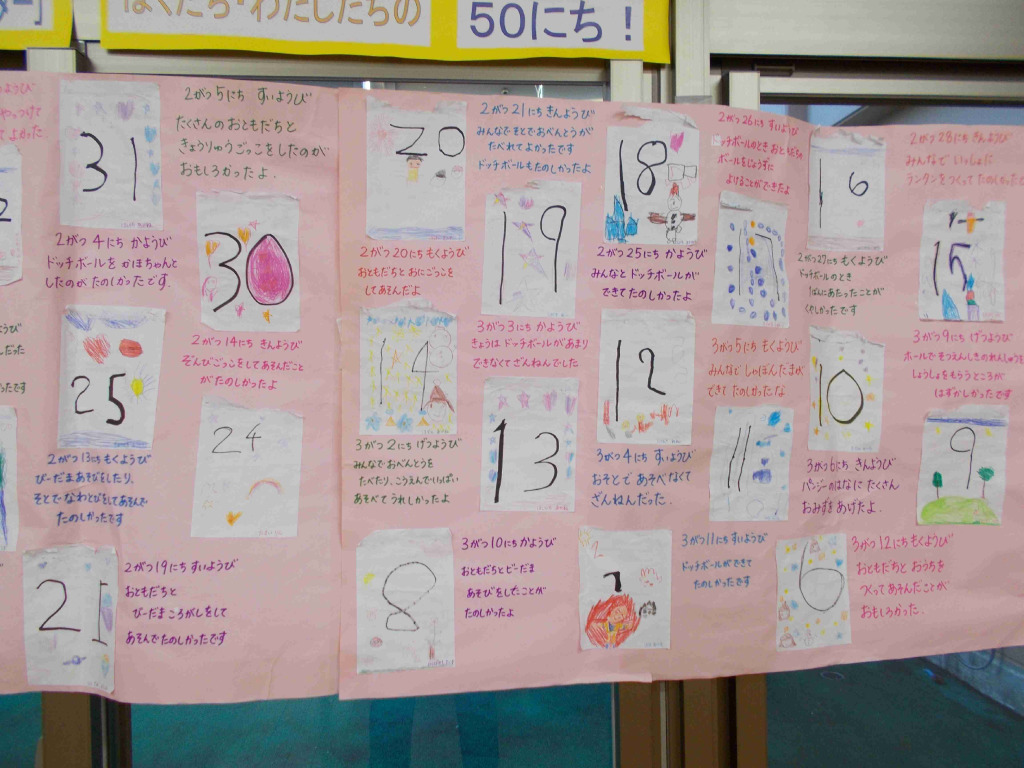 ぼくたち・わたしたちの
50にち！
31
2がつ5にち すいようび
たくさんのおともだちと
きょうりゅうごっこをしたのが
おもしろかったよ.
2がつ4にち かようび
ドッチボールを かほちゃんと
したのがたのしかったです.
30
2がつ14にち きんようび
ぞんびごっこをしてあそんだこと
がたのしかったよ
25
2がつ13にち もくようび
びーだまあそびをしたり、
そとでなわとびをしてあそんで
たのしかったです
24
21
2がつ19にち すいようび
おともだちと
びーだまころがしをして
あそんでたのしかったです
20
2がつ21にち きんようび
みんなでそとでおべんとうが
たべれてよかったです
ドッチボールもたのしかったよ
2がつ20にち もくようび
おともだちと おにごっこを
してあそんだよ
19
3がつ3にち かようび
きょうは ドッチボールがあまり
できなくてざんねんでした
18
2がつ26にち すいようび
ドッチボールのとき おともだちの
ボールをじょうずに
よけることができたよ
2がつ25にち かようび
みんなと ドッチボールが
できて たのしかったよ
17
3がつ5にち もくようび
みんなと しゃぼんだまが
できて たのしかったな
16
2がつ28にち きんようび
みんなで いっしょに
ランタンをつくって たのしかったで
2がつ27にち もくようび
ドッチボールのとき
1ばんにあたったことが
くやしかったです
15
3がつ9にち げつようび
ホールで そつえんしきの れんしゅうを
しょうしょをもらうところが
はずかしかったです
14
3がつ2にち げつようび
みんなでおべんとうを
たべたり、こうえんでいっぱい
あそべて うれしかったよ
13
12
3がつ4にち すいようび
おそとで あそべなくて
ざんねんだった.
11
10
3がつ6にち きんようび
パンジーのはなに たくさん
おみずをあげたよ.
9
8
3がつ10にち かようび
おともだちとビーだま
あそびをしたことが
たのしかったよ
7
3がつ11にち すいようび
ドッチボールができて
たのしかったです
6
3がつ12にち もくようび
おともだちと おうちを
つくってあそんだことが
おもしろかった.